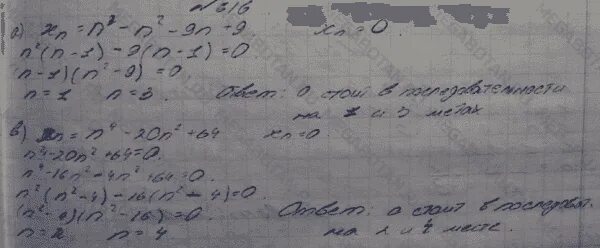 № 316
а) xn = n³ - n² - 9n + 9. xn = 0.
n²(n-1) - 9(n-1) = 0.
(n-1)(n²-9) = 0
n = 1 n = 3. Ответ: 0 стоит в последовательности
на 1 и 3 метах
в) xn = n⁴ - 20n² + 64 xn = 0.
n⁴ - 20n² + 64 = 0.
n⁴ - 16n² - 4n² + 64 = 0.
n²(n² - 4) - 16(n² - 4) = 0.
(n² - 4)(n² - 16) = 0. Ответ: 0 стоит в последоват.
n = 2 n = 4 на 2 и 4 месте.